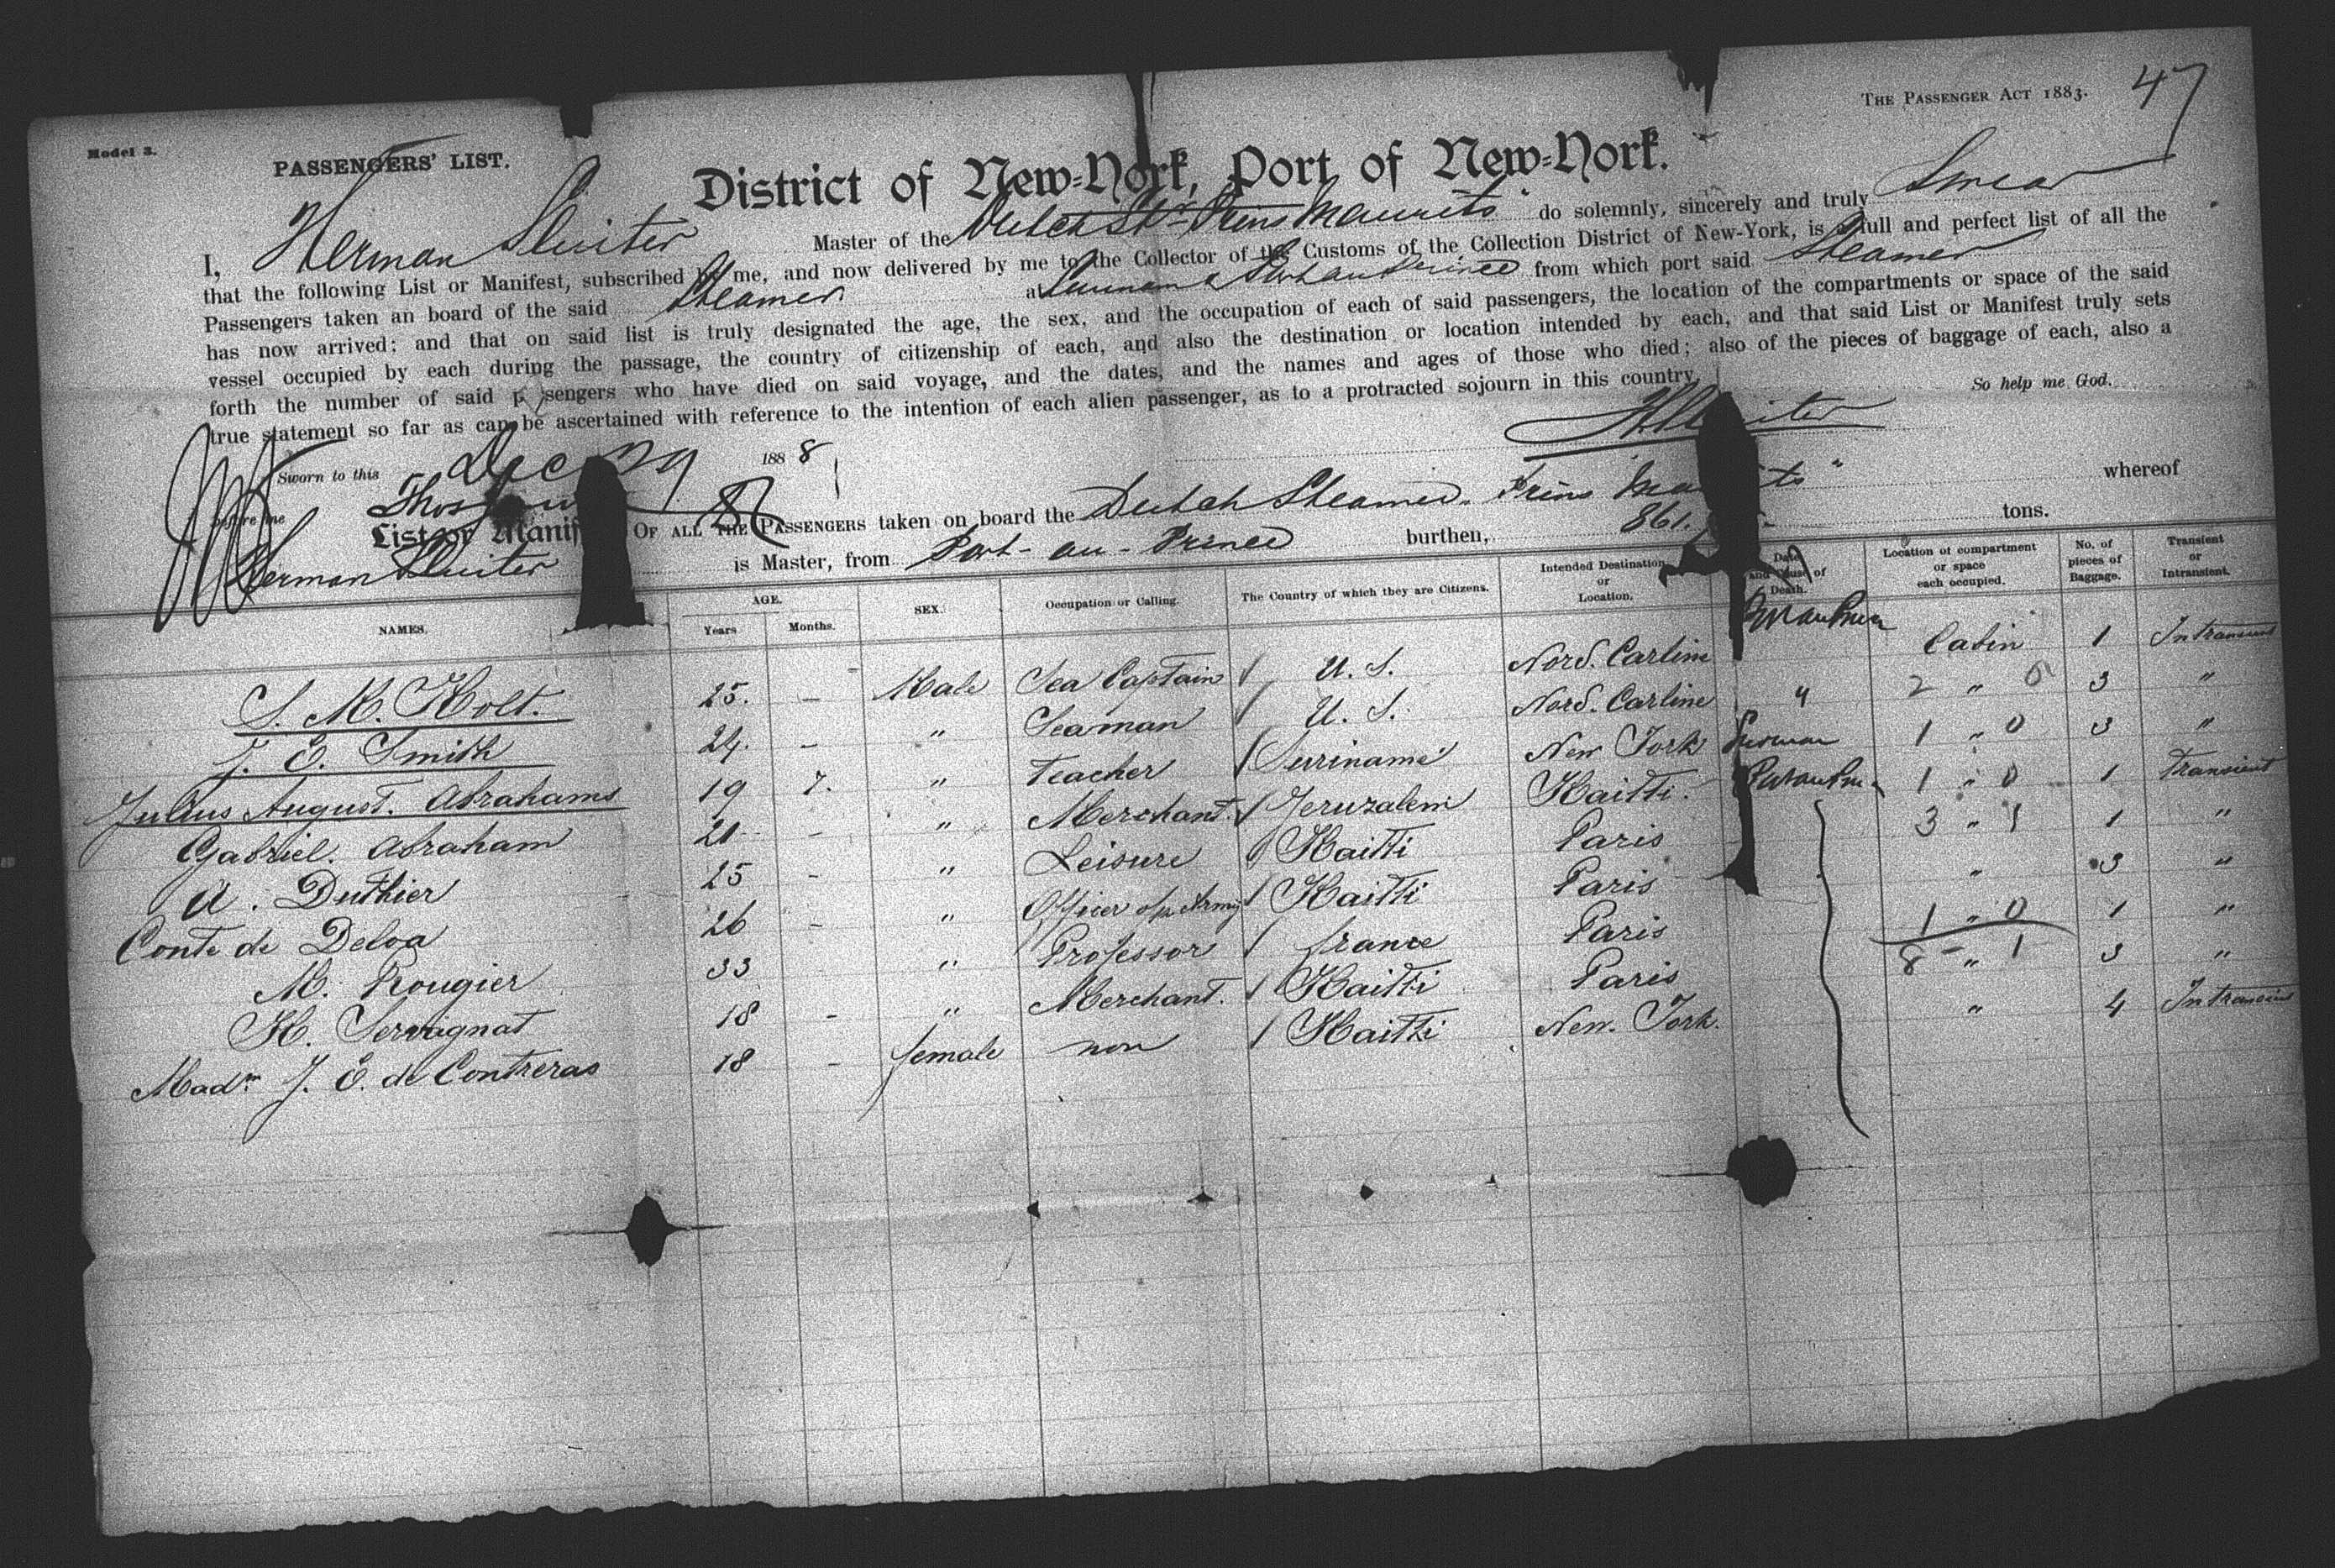 THE PASSENGER ACT 1883. 47
Model 3.
PASSENGERS' LIST.
District of New=York, Port of New=York.
I, Herman Sluiter Master of the Dutch Str Prins Maurits do solemnly, sincerely and truly Swear
that the following List or Manifest, subscribed by me, and now delivered by me to the Collector of the Customs of the Collection District of New-York, is a full and perfect list of all the
Passengers taken an board of the said Steamer at Surinam & Port au Prince from which port said Steamer
has now arrived; and that on said list is truly designated the age, the sex, and the occupation of each of said passengers, the location of the compartments or space of the said
vessel occupied by each during the passage, the country of citizenship of each, and also the destination or location intended by each, and that said List or Manifest truly sets
forth the number of said passengers who have died on said voyage, and the dates, and the names and ages of those who died; also of the pieces of baggage of each, also a
true statement so far as can be ascertained with reference to the intention of each alien passenger, as to a protracted sojourn in this country.
So help me God.
HSluiter
Sworn to this Dec 29 1888
before me Thos
List or Manifest OF ALL THE PASSENGERS taken on board the Dutch Steamer Prins Maurits" whereof
Herman Sluiter is Master, from Port-au-Prince burthen, 861. tons.
NAMES. AGE. Years Months. SEX. Occupation or Calling. The Country of which they are Citizens. Intended Destination or Location. Date and Cause of Death. Location of compartment or space each occupied. No. of pieces of Baggage. Transient or Intransient.
S. M. Holt. 25. - Male Sea Captain U. S. Nord. Carline Cabin 1 Intransient
J. E. Smith 24. - " Seaman U. S. Nord. Carline " 2 " 0 3 "
Julius August. Abrahams 19 7. " Teacher Suriname New York Surinam 1 " 0 3 "
Gabriel. Abraham 21 - " Merchant. Jeruzalem Haitti. 1 " 0 1 Transient
A. Duthier 25 - " Leisure Haitti Paris 3 " 1 1 "
Conte de Deloa 26 - " Officer of/r Army Haitti Paris " 3 "
M. Rougier 33 " Professor france Paris 1 " 0 1 "
H. Servaignat 18 - " Merchant. Haitti Paris 8 - " 1 3 "
Madm J. E. de Contreras 18 - female non Haitti New. York. " 4 Intransient